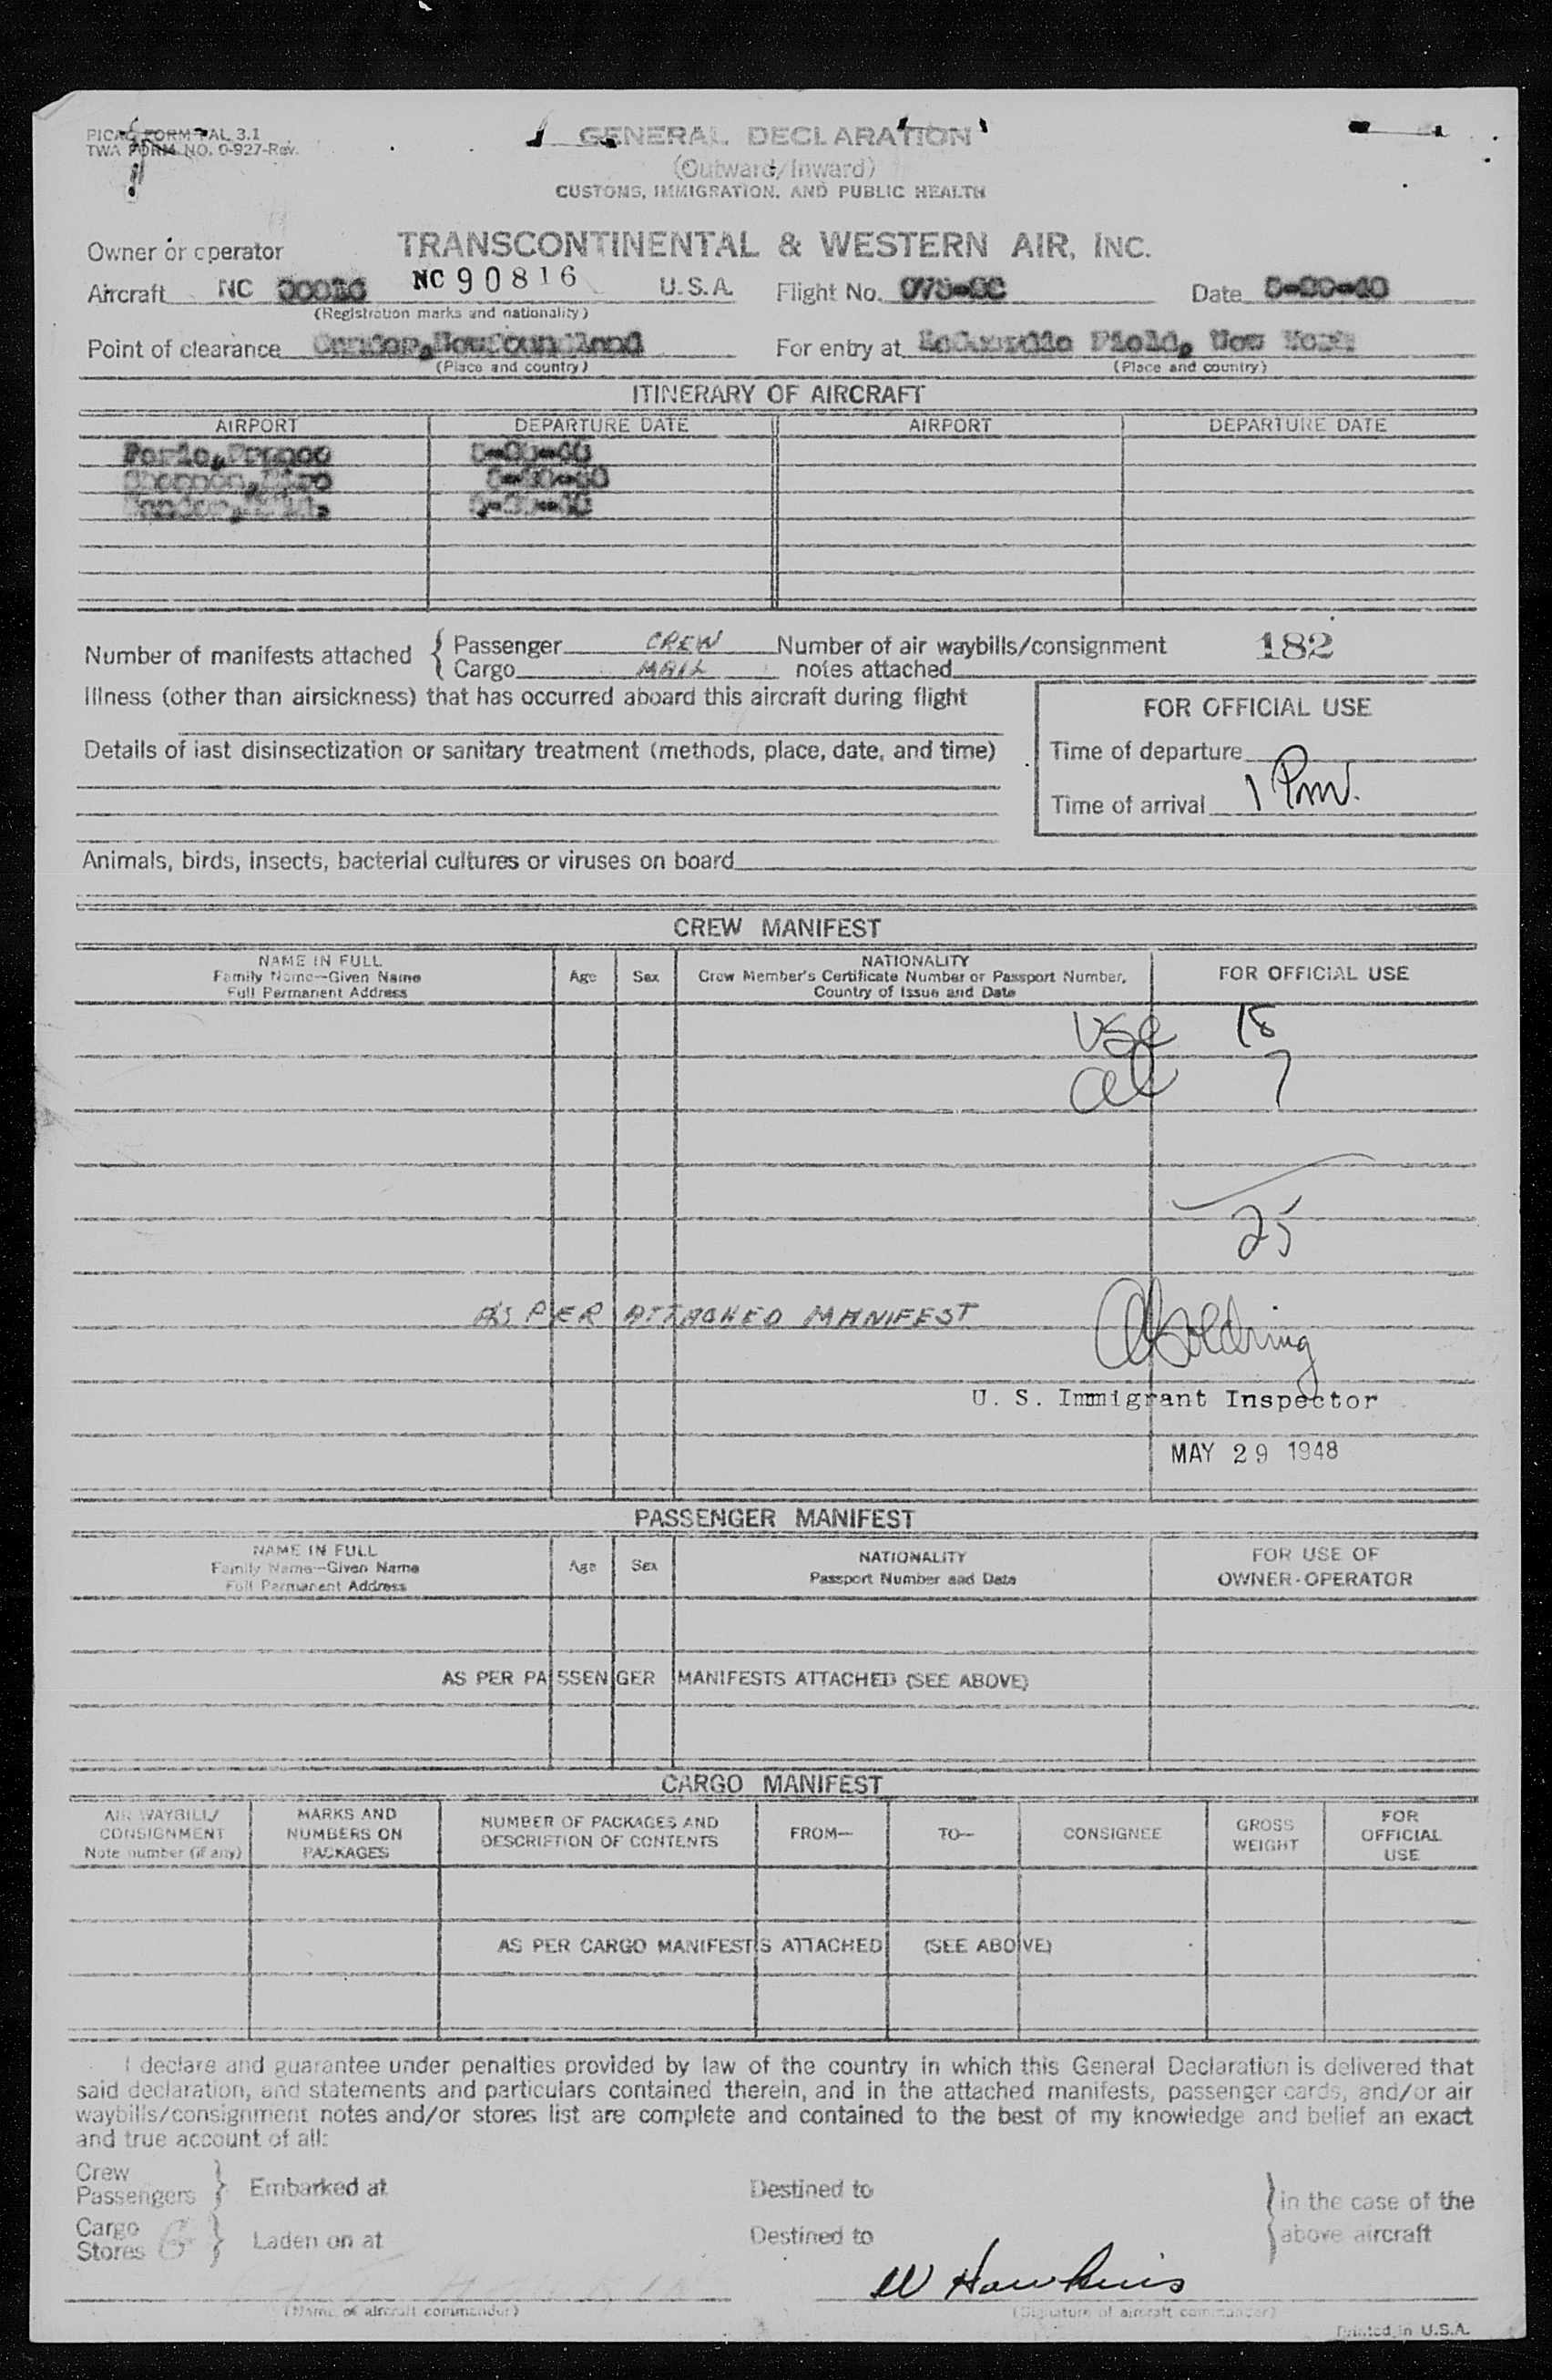 PICAO FORM PAL 3.1
TWA FORM NO. 0-927-Rev.
GENERAL DECLARATION
(Outward/Inward)
CUSTOMS, IMMIGRATION, AND PUBLIC HEALTH
Owner or operator TRANSCONTINENTAL & WESTERN AIR, INC.
Aircraft NC NC 90816 U.S.A. Flight No. Date
(Registration marks and nationality)
Point of clearance Gander, Newfoundland For entry at LaGuardia Field, New York
(Place and country) (Place and country)
ITINERARY OF AIRCRAFT
AIRPORT DEPARTURE DATE AIRPORT DEPARTURE DATE
Paris, France
Shannon, Eire
Gander, Nfld.
Number of manifests attached { Passenger CREW Number of air waybills/consignment 182
Cargo MAIL notes attached
Illness (other than airsickness) that has occurred aboard this aircraft during flight
FOR OFFICIAL USE
Details of last disinsectization or sanitary treatment (methods, place, date, and time)
Time of departure
Time of arrival 1 Pm.
Animals, birds, insects, bacterial cultures or viruses on board
CREW MANIFEST
NAME IN FULL
Family Name—Given Name
Full Permanent Address
Age
Sex
NATIONALITY
Crew Member's Certificate Number or Passport Number,
Country of Issue and Date
FOR OFFICIAL USE
USC 18
al 7
25
AS PER ATTACHED MANIFEST
U. S. Immigrant Inspector
MAY 29 1948
PASSENGER MANIFEST
NAME IN FULL
Family Name—Given Name
Full Permanent Address
Age
Sex
NATIONALITY
Passport Number and Date
FOR USE OF
OWNER-OPERATOR
AS PER PASSENGER MANIFESTS ATTACHED (SEE ABOVE)
CARGO MANIFEST
AIR WAYBILL/
CONSIGNMENT
Note number (if any)
MARKS AND
NUMBERS ON
PACKAGES
NUMBER OF PACKAGES AND
DESCRIPTION OF CONTENTS
FROM—
TO—
CONSIGNEE
GROSS
WEIGHT
FOR
OFFICIAL
USE
AS PER CARGO MANIFESTS ATTACHED (SEE ABOVE)
I declare and guarantee under penalties provided by law of the country in which this General Declaration is delivered that
said declaration, and statements and particulars contained therein, and in the attached manifests, passenger cards, and/or air
waybills/consignment notes and/or stores list are complete and contained to the best of my knowledge and belief an exact
and true account of all:
Crew
Passengers } Embarked at Destined to } in the case of the
Cargo
Stores } Laden on at Destined to } above aircraft
W Hawkins
(Name of aircraft commander) (Signature of aircraft commander)
Printed in U.S.A.